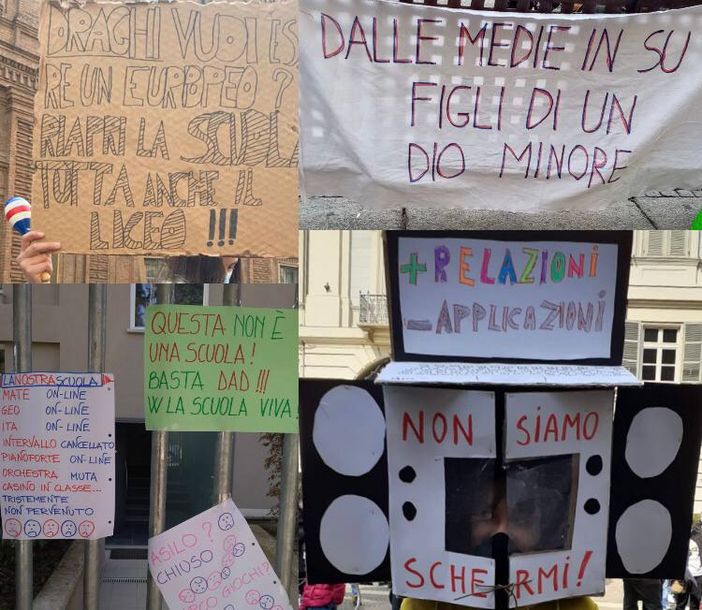 DRAGHI VUOI ES
RE UN EUROPEO?
RIAPRI LA SCUOLA
TUTTA ANCHE IL
LICEO !!!
DALLE MEDIE IN SU
FIGLI DI UN
DIO MINORE
QUESTA NON È
UNA SCUOLA!
BASTA DAD!!!
W LA SCUOLA VIVA!
LA NOSTRA SCUOLA
MATE ON-LINE
GEO ON-LINE
ITA ON-LINE
INTERVALLO CANCELLATO
PIANOFORTE ON-LINE
ORCHESTRA MUTA
CASINO IN CLASSE...
TRISTEMENTE
NON PERVENUTO
ASILO?
CHIUSO
GIOCHI?
+RELAZIONI
-APPLICAZIONI
NON SIAMO
SCHERMI!